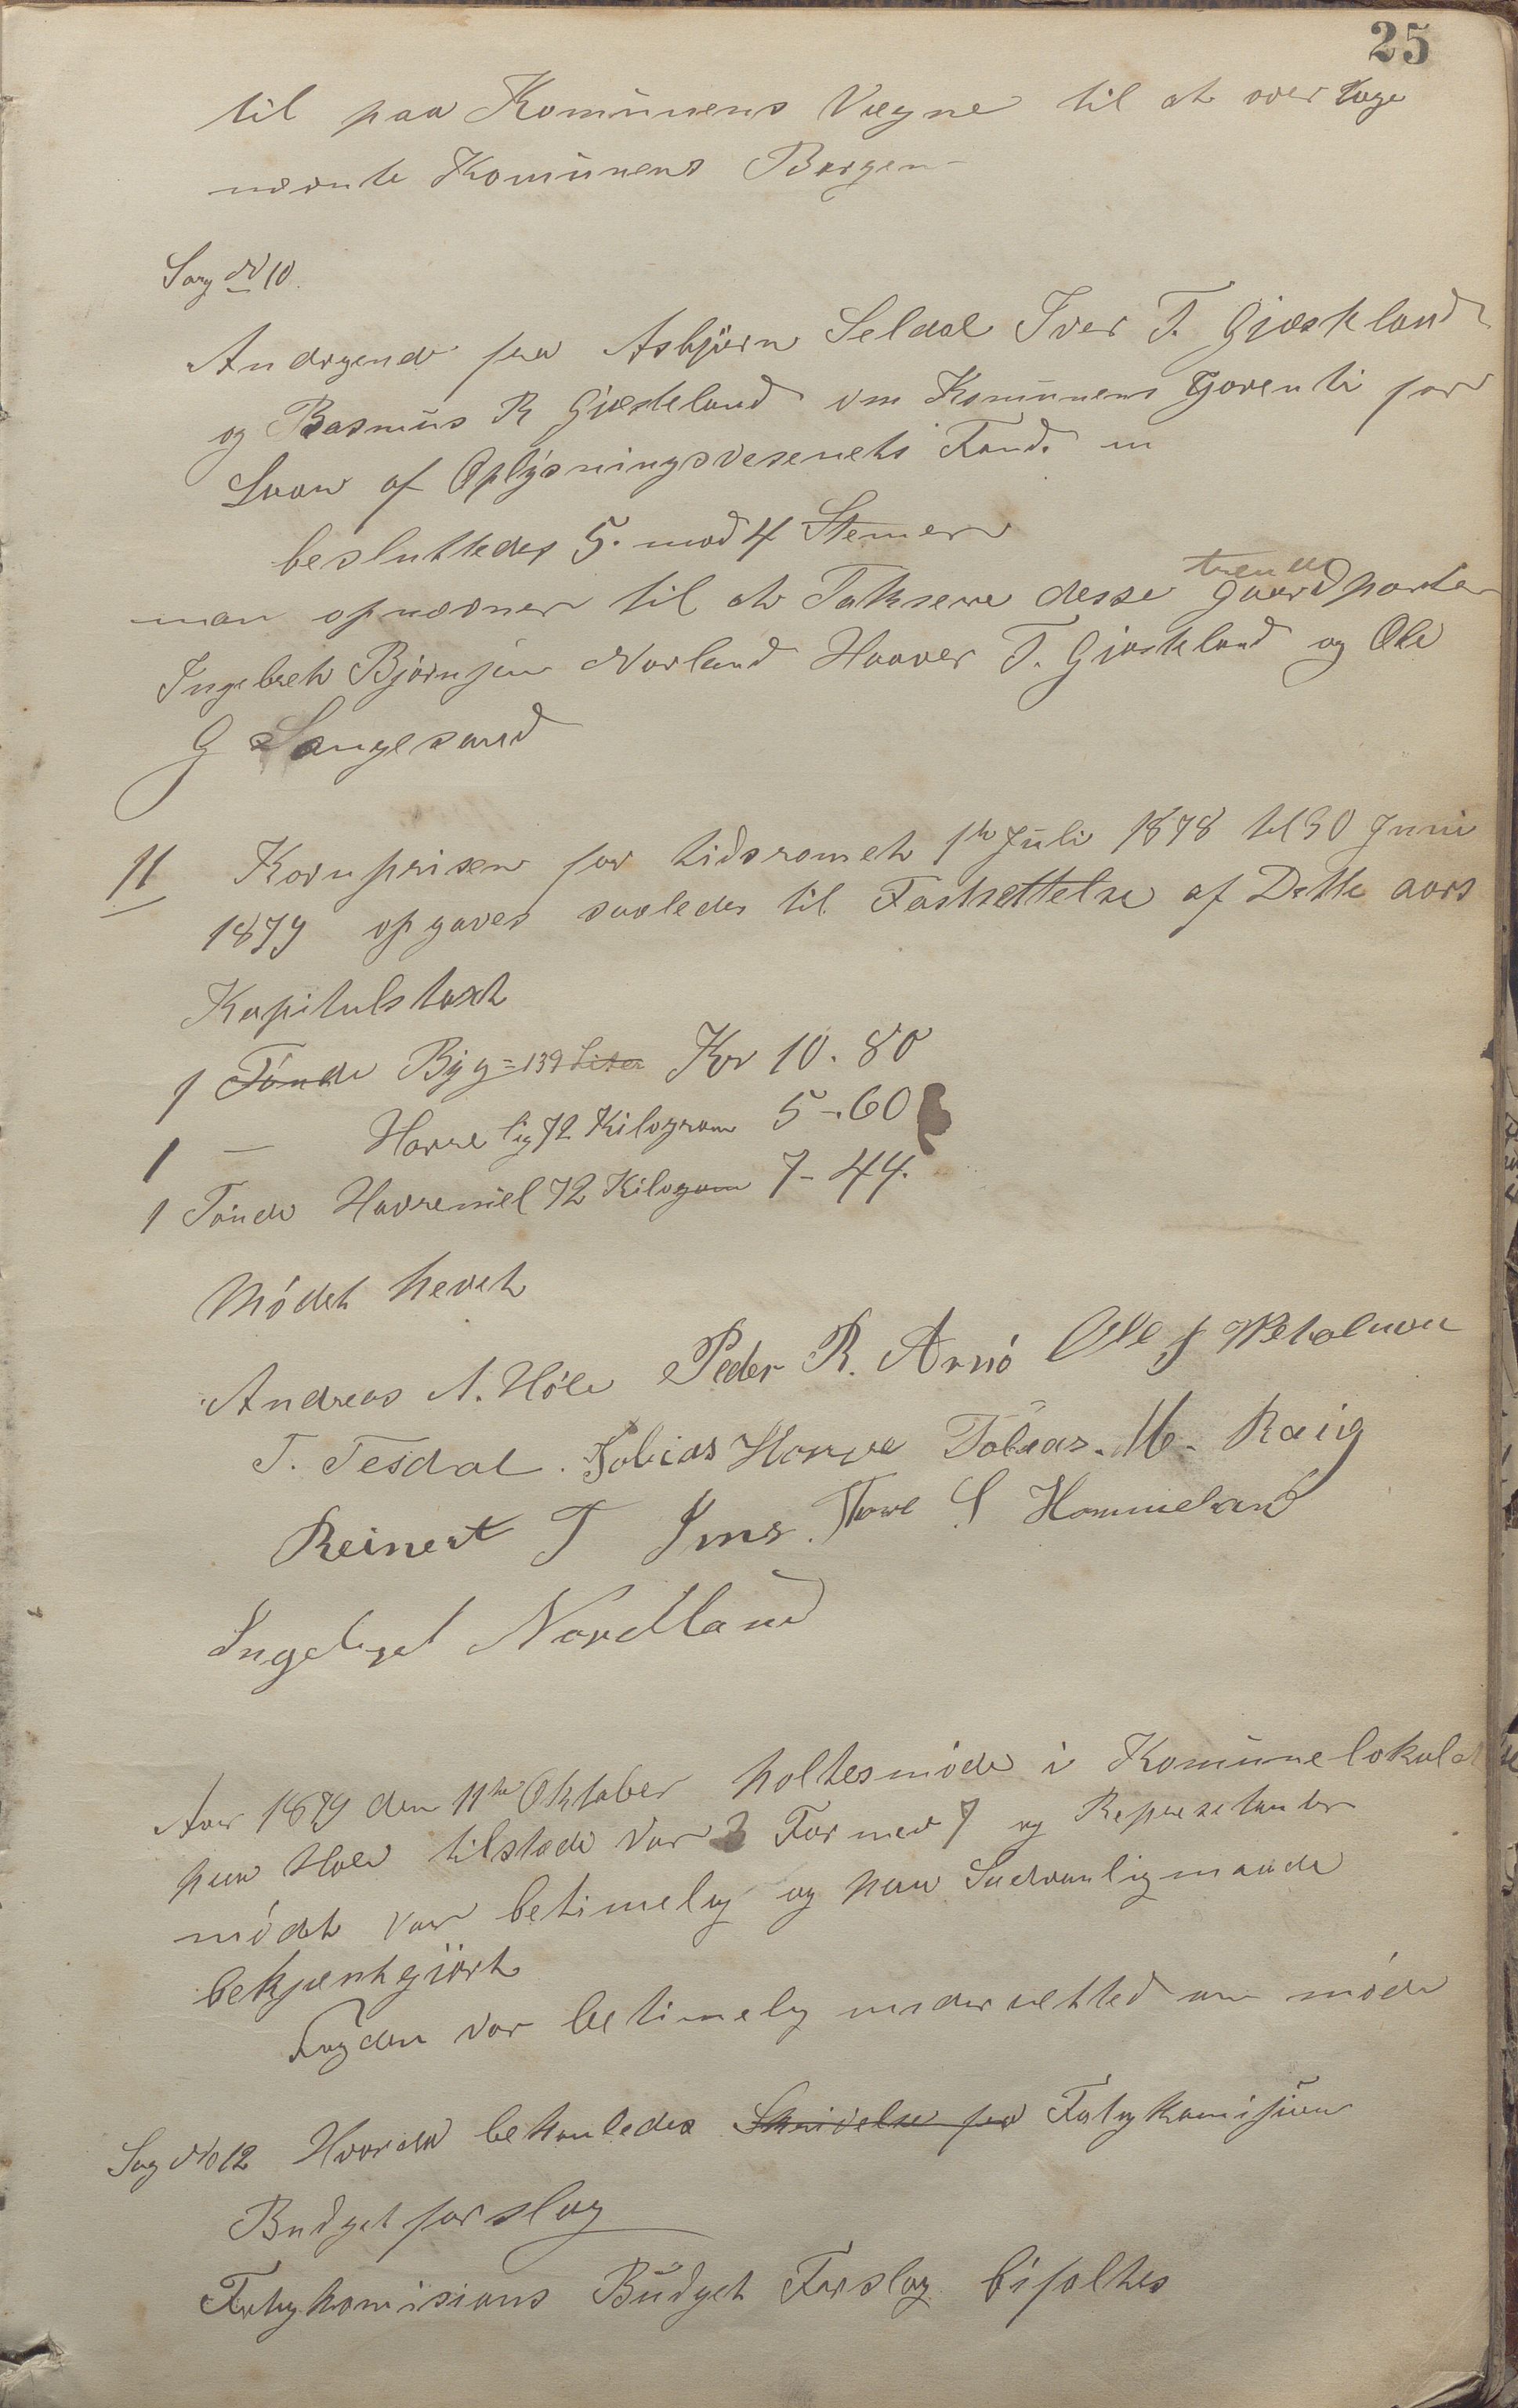 25
til paa Komunens Vegne til at over tage
nævnte Komunens Borgen
Sag No 10.
Andragende fra Asbjørn Seldal Iver T. Gjæskland
og Rasmus R Gjæskeland om Komunens Garenti for
Laan af Oplysningsvesenets Fond. m
besluttedes 5. mod 4 Stemer
man opnævner til at Taksere desse trende Gaardparter
Ingebret Bjørnsen Norland Haaver T. Gjæskland og Ole
G Langesand
11 Kornprisen for tidsromet 1te Juli 1878 til 30 Juni
1879 opgaves saaledes til Fastsettelse af Dette aars
Kapitulstaxt
1 Tønde Byg = 139 Liter Kr 10. 80
1 — Havre lig 72 Kilogram 5 -. 60
1 Tønde Havremel 72 Kilogam 7 - 44.
Mødet hevet
Andreas A. Høle Peder R. Arnø Ole J
T. Tesdal. Tobias Hauge Tobias. M. Røeig
Reinert T Ims. Tore S Hommeland
Ingebret Nordland
Aar 1879 den 11te Oktober holtes møde i Komunelokalet
paa Hole tilstæde var 3 Formæ 7 og Represetanter
mødet var betimelig og paa Sædvanlig maade
bekjentgjørt
Fogden var betimelig underrettet om møde
Sag No 12 Hvorda behanledes Skrivelse fra Fatigkomisjion
Budget forslag
Fatigkomisions Budget Forslag bifaltes